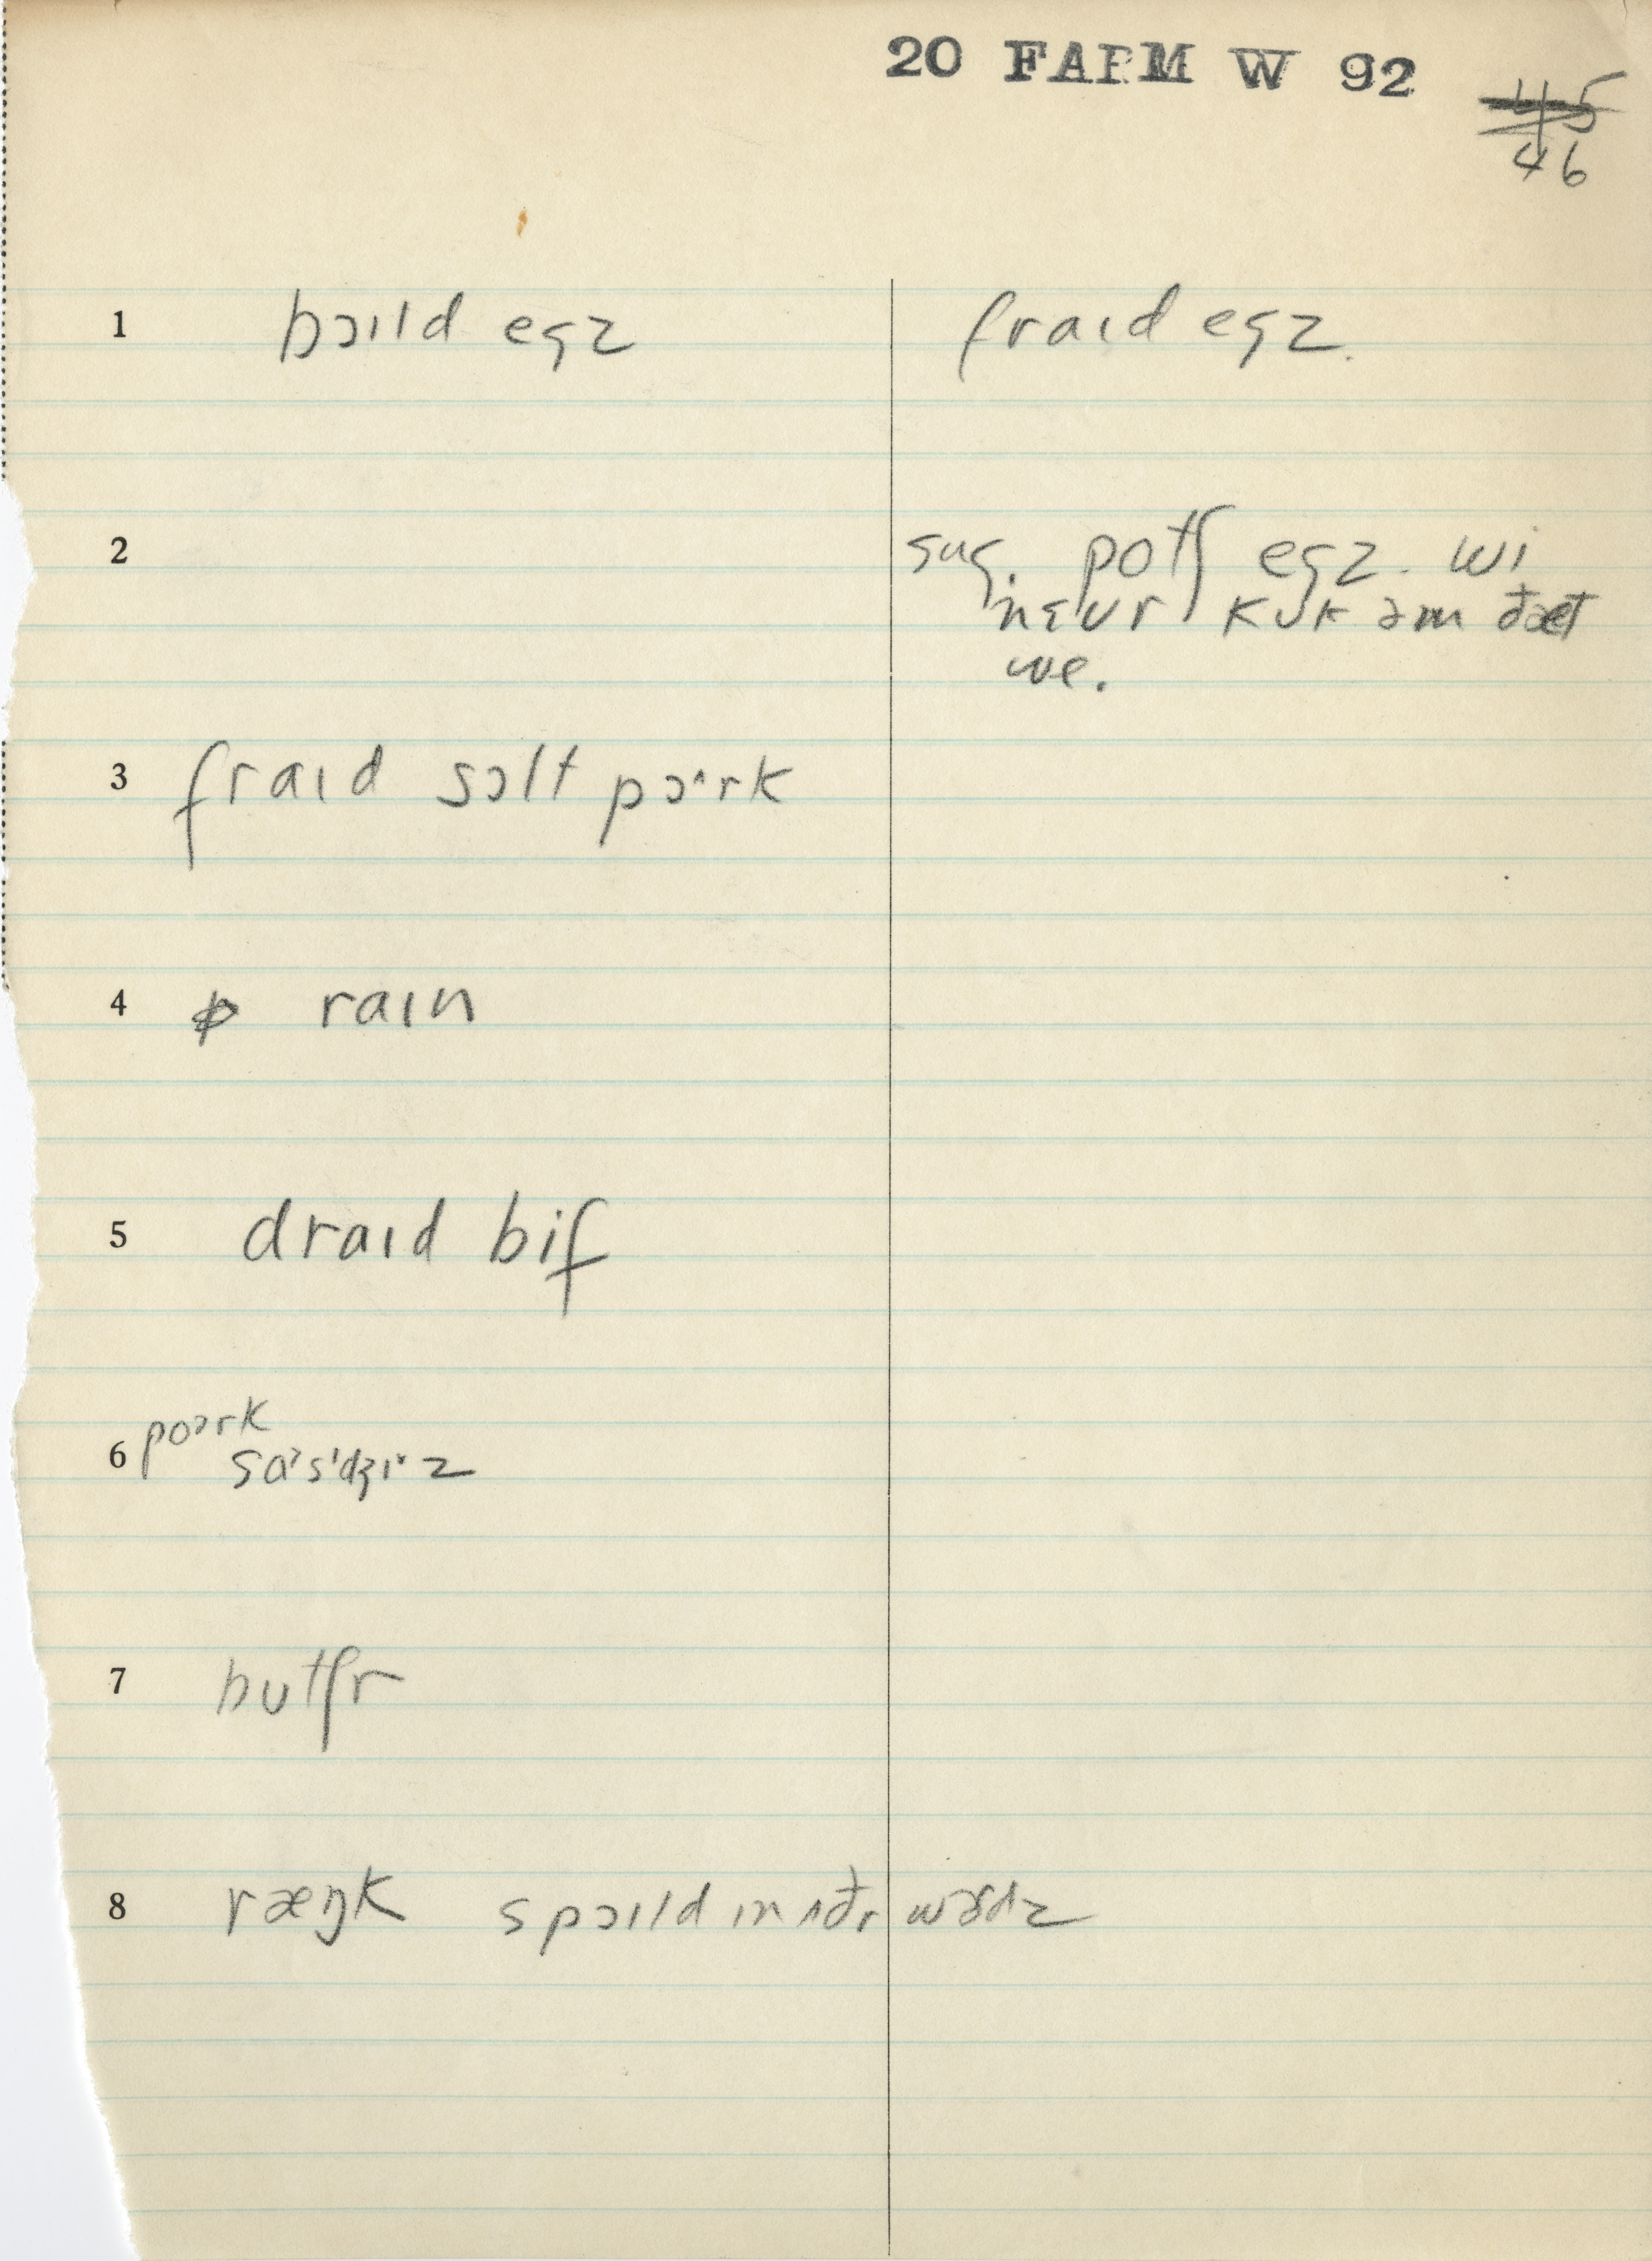 20 FARM W 92
45
46
1 bɔɪld egz fraɪd egz.
2 sug. potʃ egz. wi
nɛvr kʊk əm ðæt
we.
3 fraɪd sɔlt pɔ˄rk
4 raɪn
5 draɪd bif
6 poərk
sɑ˃sɪdʒɪ˅z
7 bʊtʃr
8 ræŋk spɔɪld ɪn ʌðr wərdz